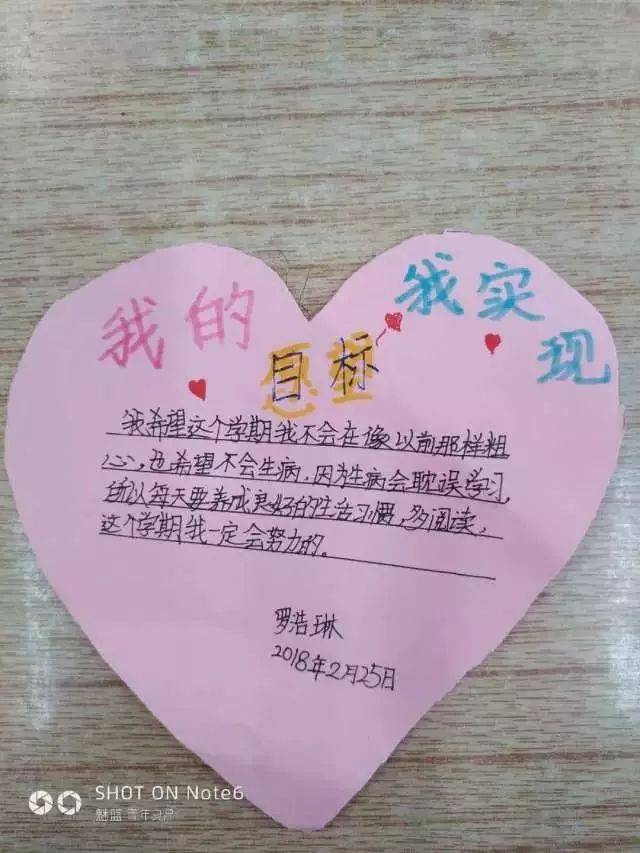 我的
目标
我实
现
我希望这个学期我不会在像以前那样粗
心,也希望不会生病,因为生病会耽误学习,
所以每天要养成良好的生活习惯,多阅读,
这个学期我一定会努力的。
罗浩琳
2018年2月25日
SHOT ON Note6
魅蓝